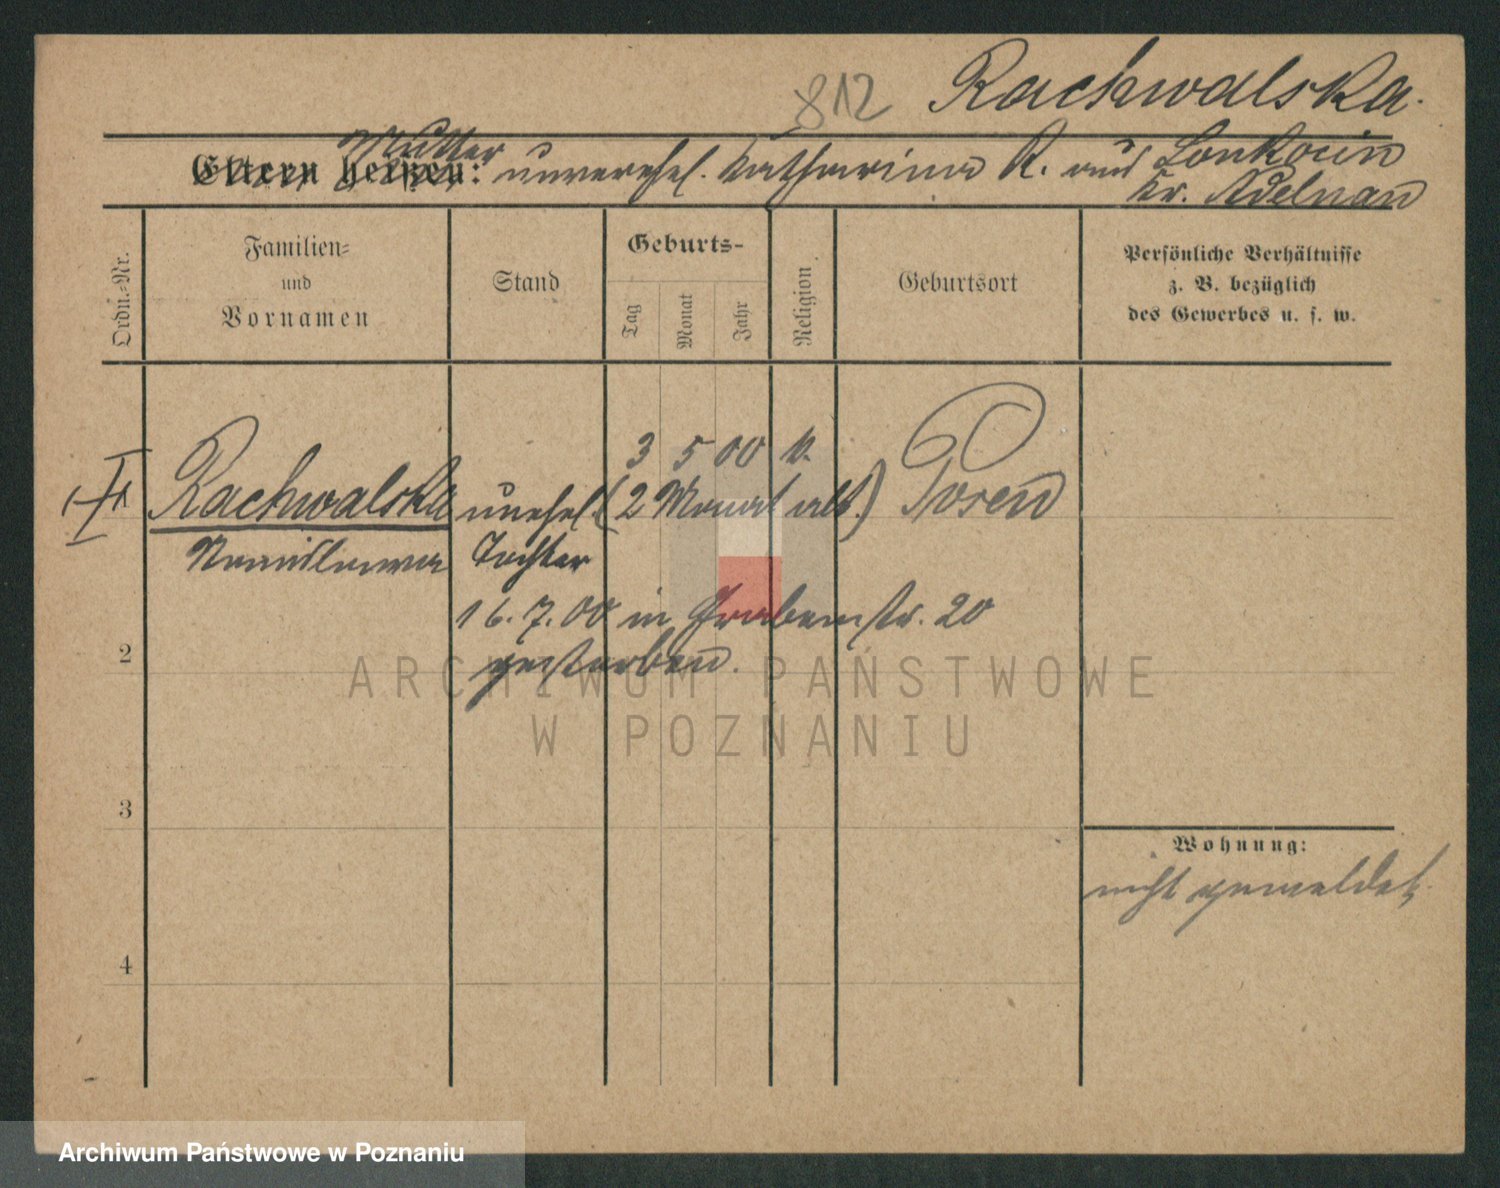 812 Rachwalska.
Mutter
Eltern heißen: unverehel. Katharina R. aus Lonkocin
Kr. Adelnau
Ordn.-Nr.
Familien-
und
Vornamen
Stand
Geburts-
Tag
Monat
Jahr
Religion
Geburtsort
Persönliche Verhältnisse
z. B. bezüglich
des Gewerbes u. s. w.
3 5 00 k.
Rachwalska unehel. (2 Monat alt.) Posen
Tochter
16. 7. 00 in Grabenstr. 20
2 gestorben.
3
Wohnung:
nicht gemeldet.
4
ARCHIWUM PAŃSTWOWE
W POZNANIU
Archiwum Państwowe w Poznaniu